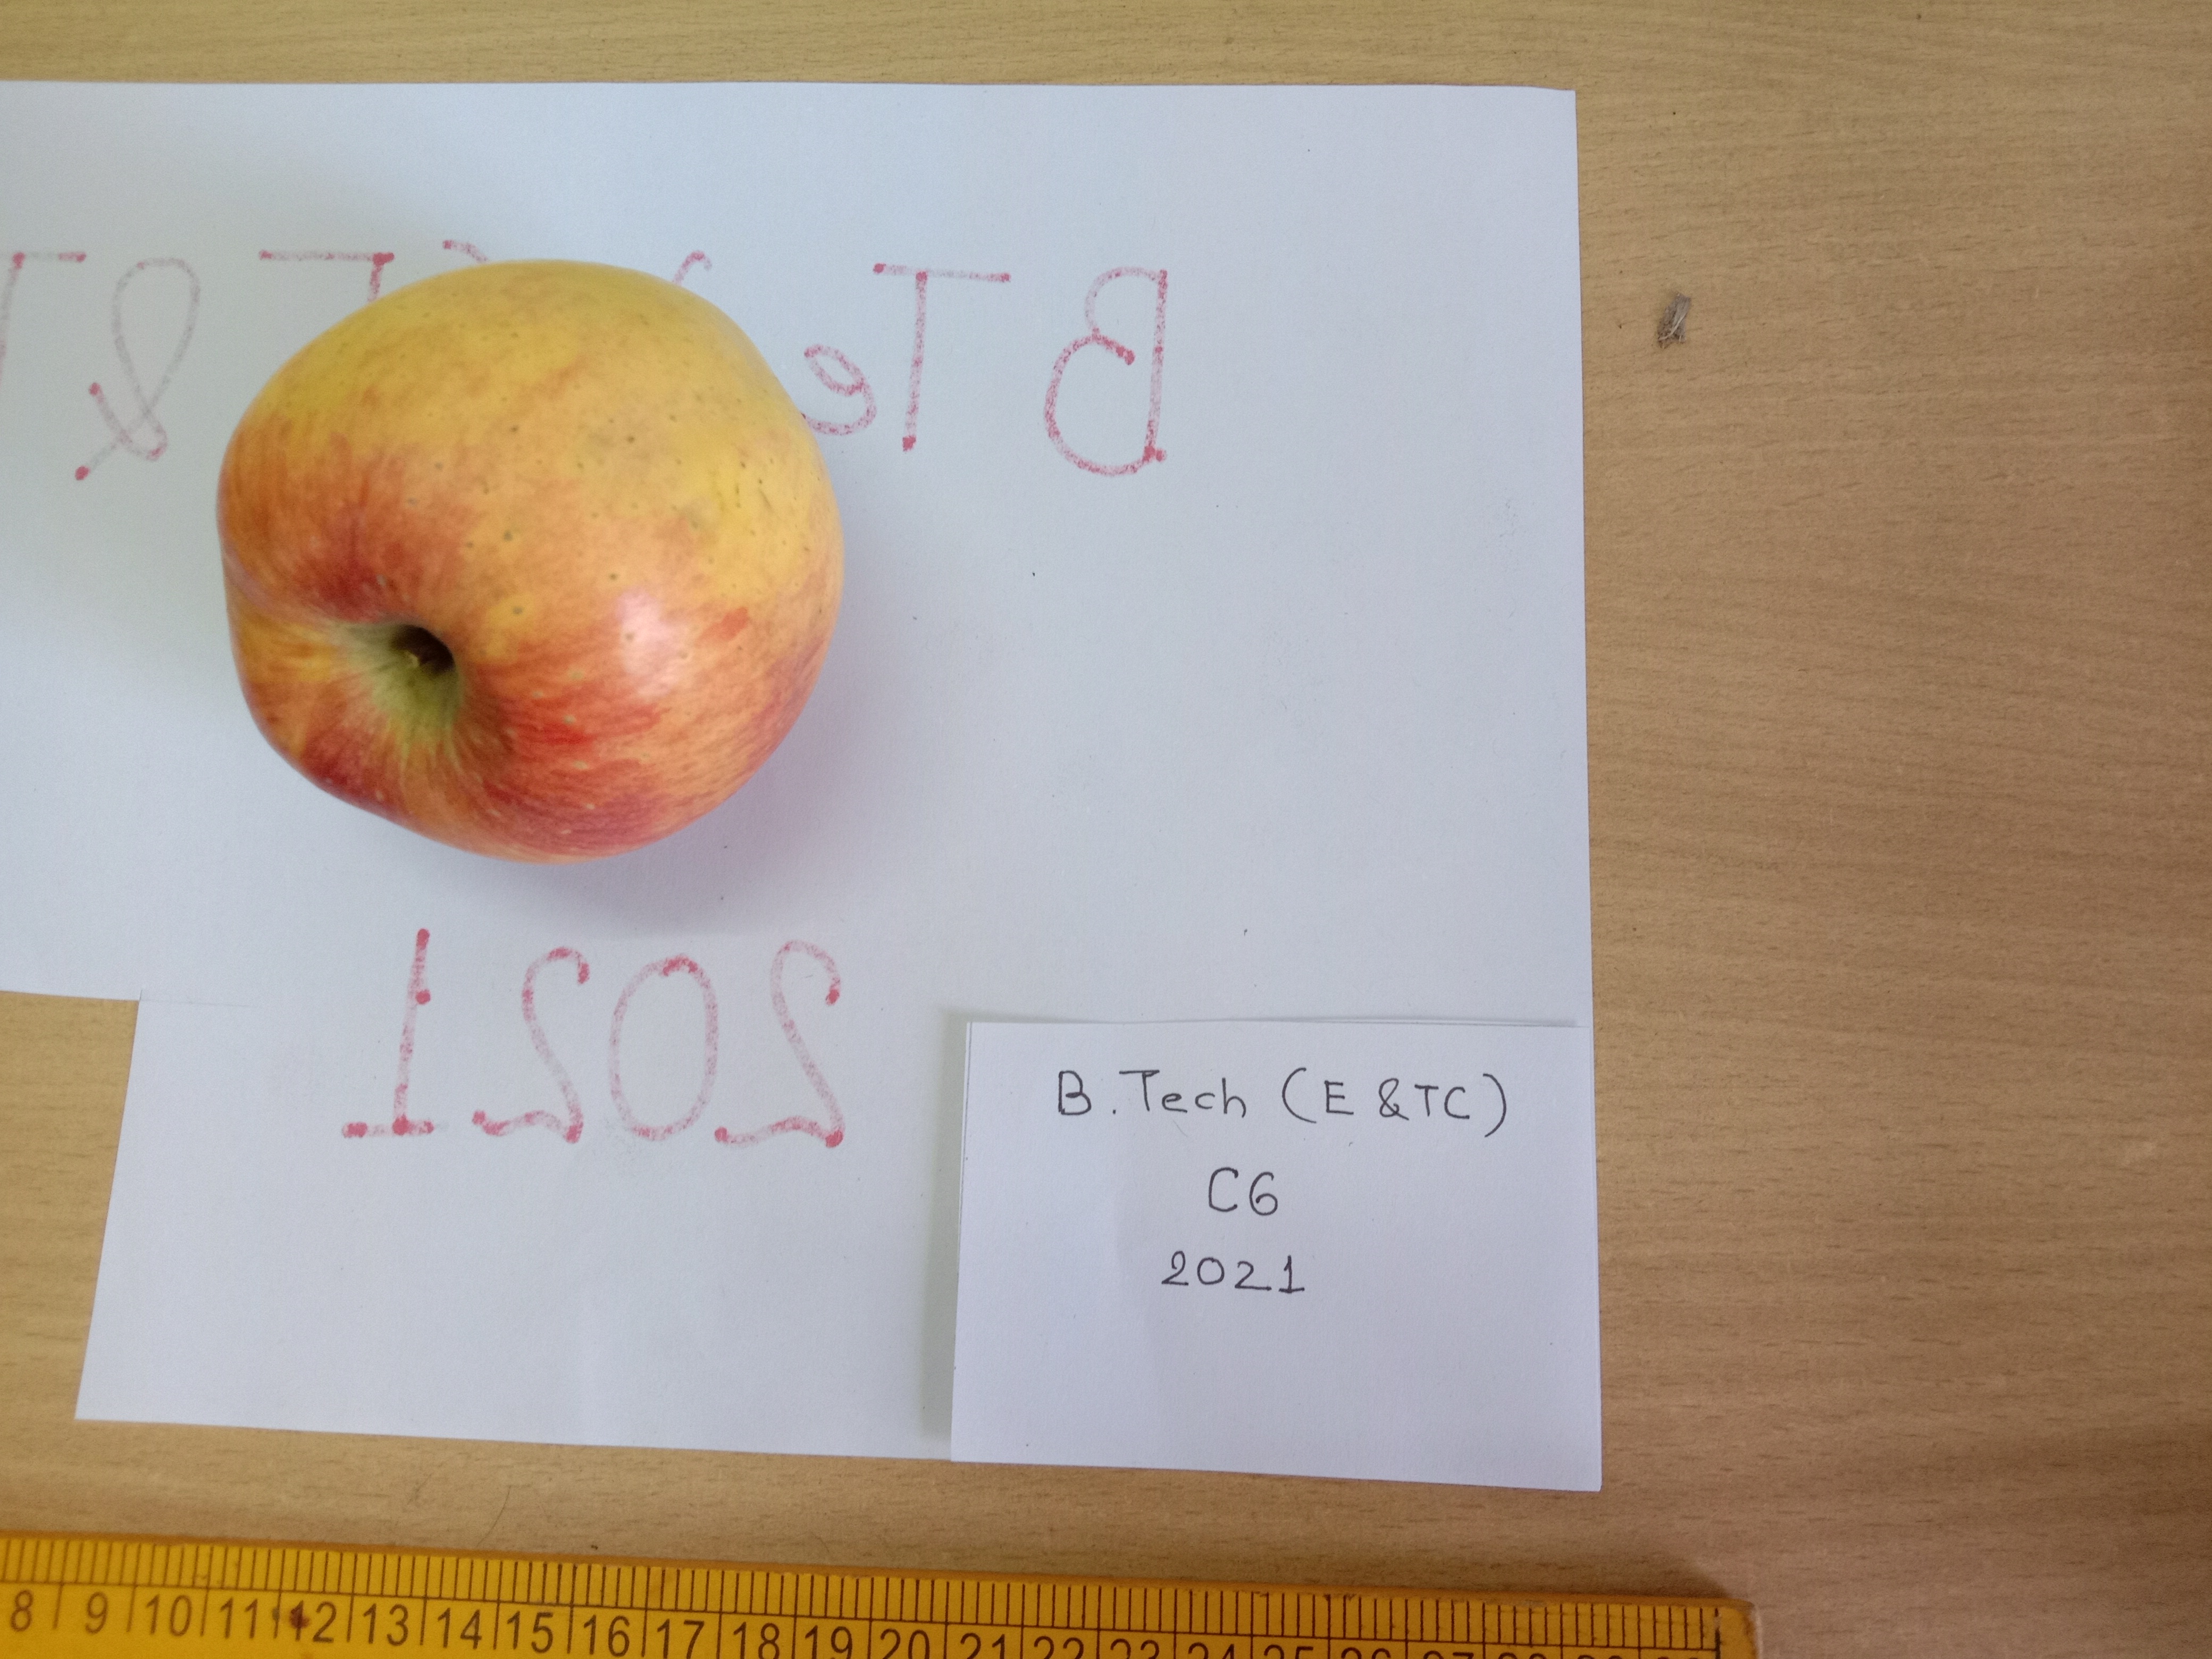 B Te
2021
B. Tech (E & TC)
C6
2021
8 9 10 11 12 13 14 15 16 17 18 19 20 21 22 23 24 25 26 27 28 29 30